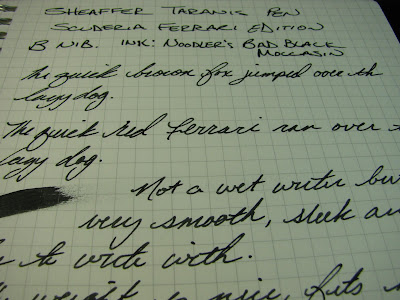 SHEAFFER TARANIS PEN
SCUDERIA FERRARI EDITION
B NIB. INK: NOODLER'S BAD BLACK
MOCCASIN
The quick brown fox jumped over th
lazy dog.
The quick red Ferrari ran over
lazy dog.
Not a wet writer but
very smooth, sleek an
to write with.
weight is nice, fits